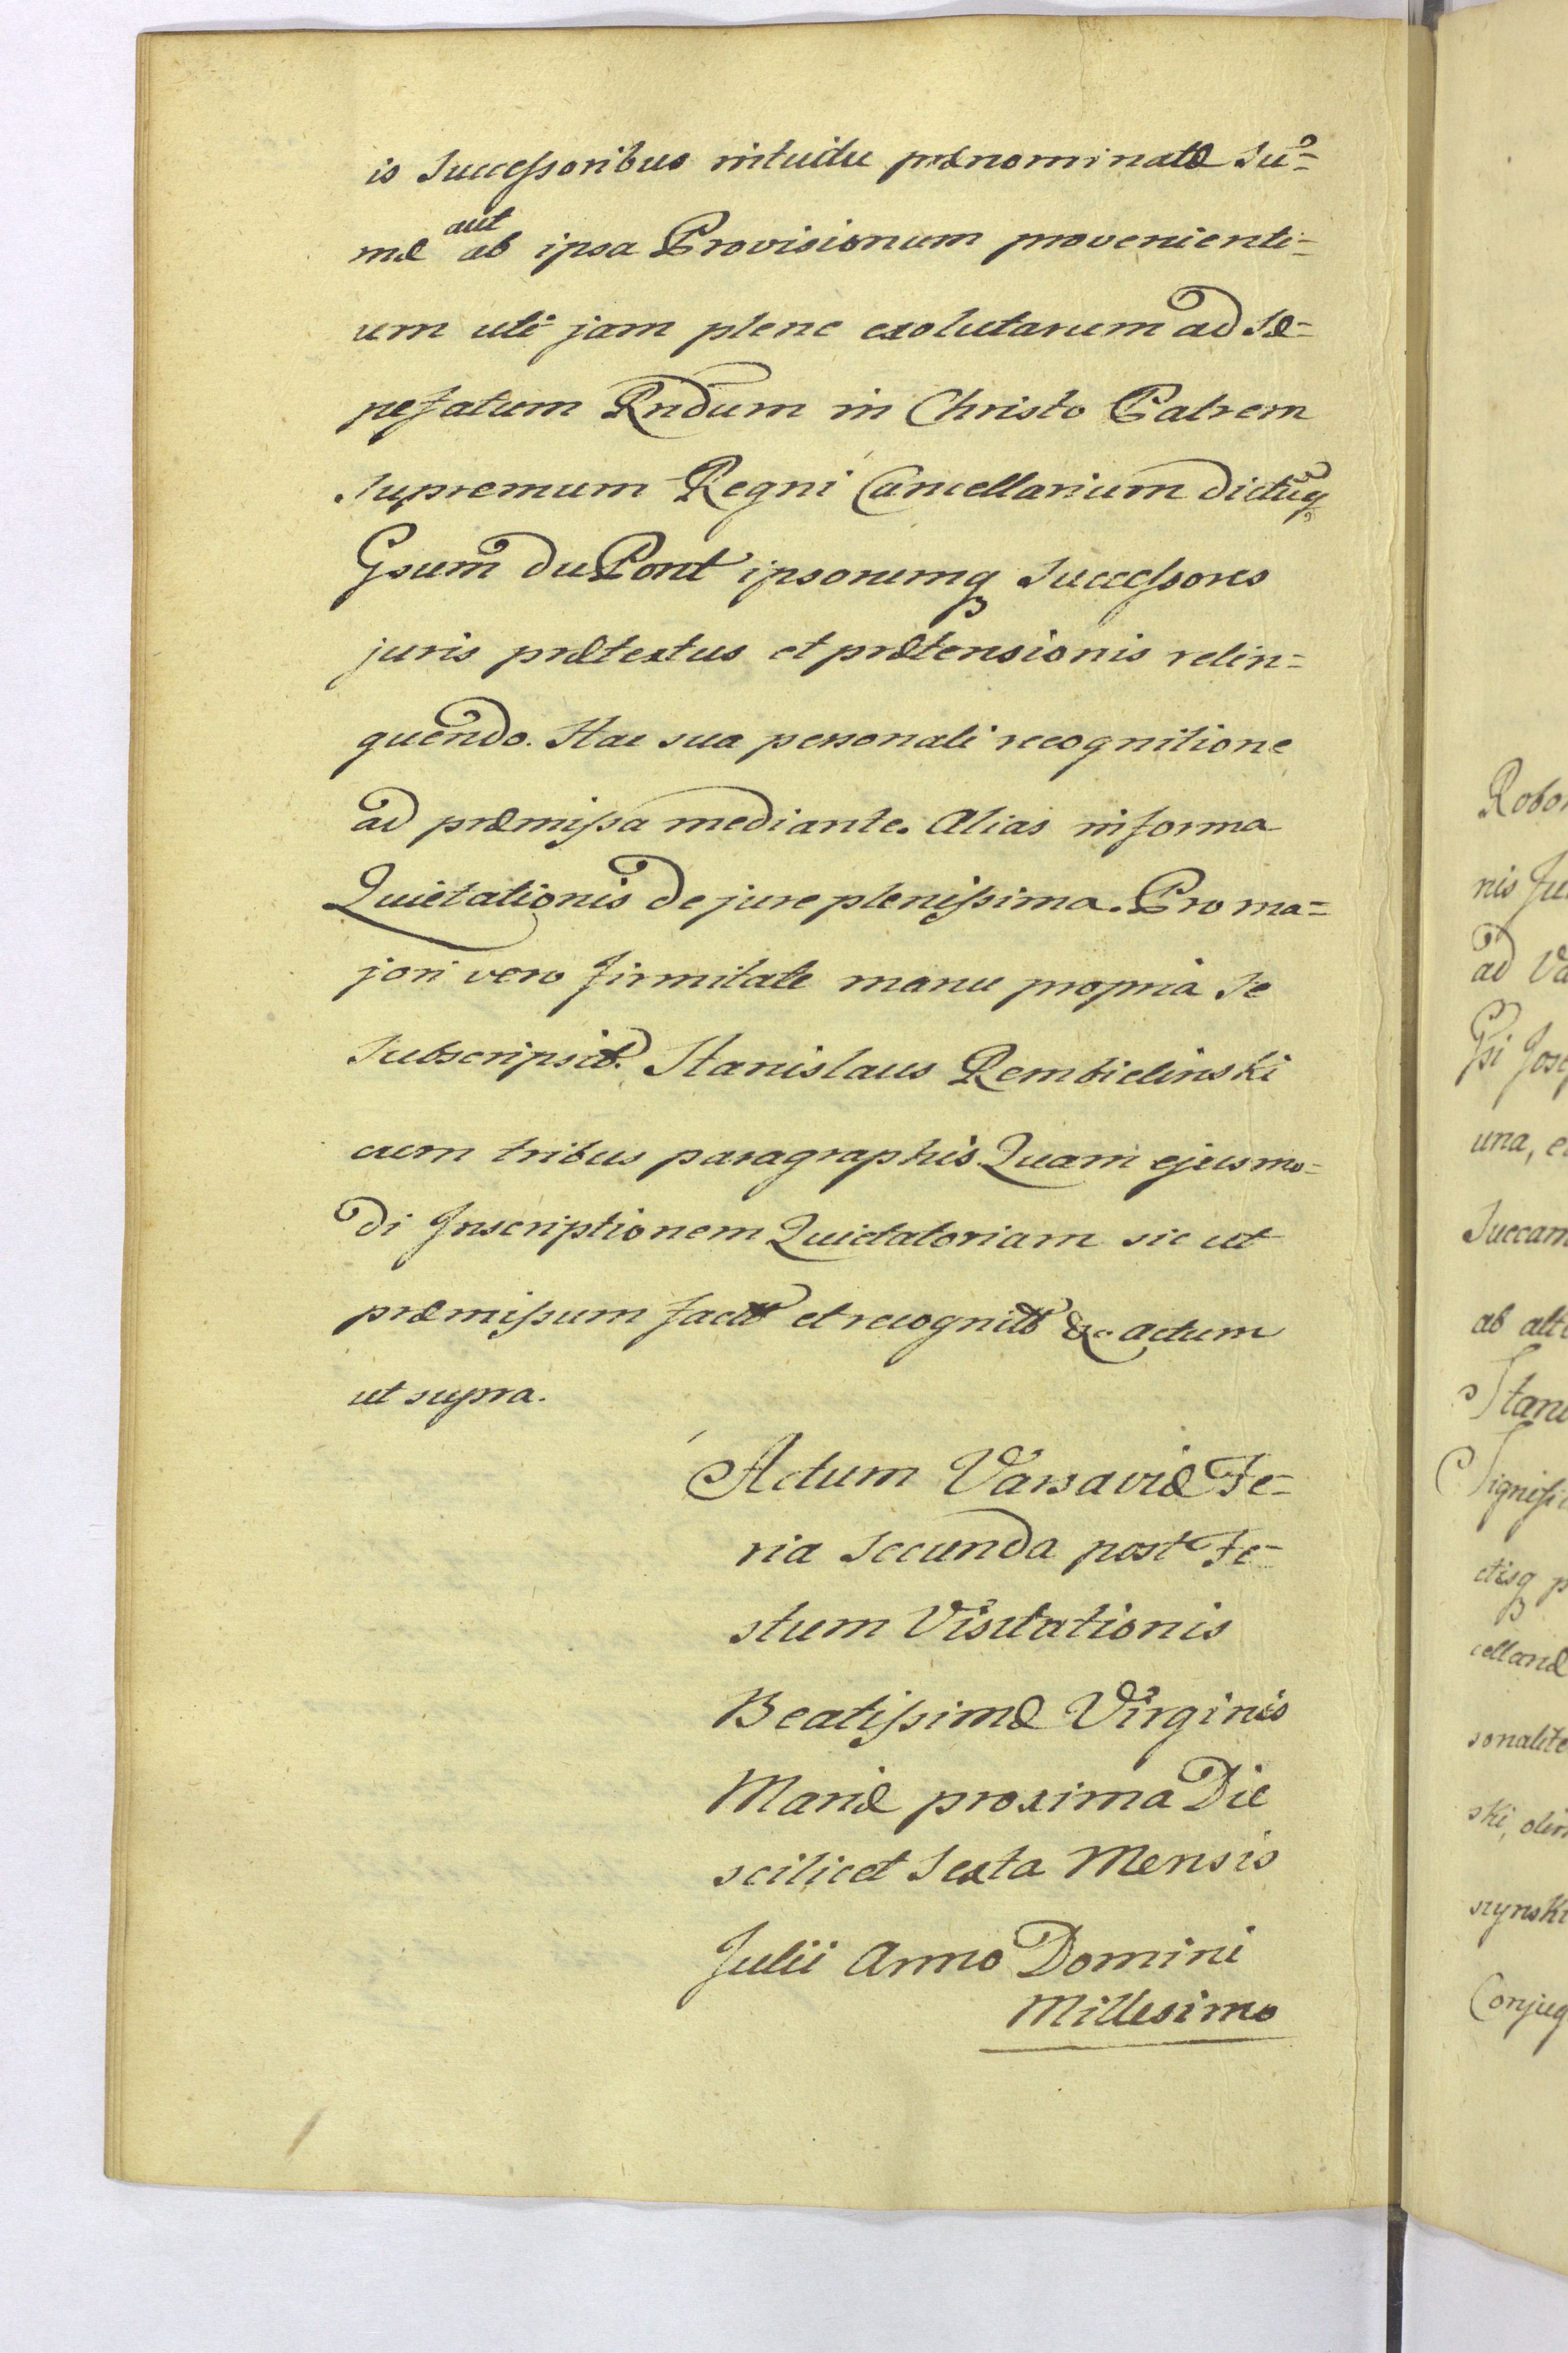 is Successoribus intuitu prænominatæ Su=
mæ aut ab ipsa Provisionum provenienti=
um uti jam plene exolutarum ad Sæ=
pefatum Rndum in Christo Patrem
Supremum Regni Cancellarium dictũq
Gsum du Pont ipsorumq Successores
juris prætextus et prætensionis relin=
quendo. Hac sua personali recognitione
ad præmissa mediante. Alias in forma
Quietationis de jure plenissima. Pro ma=
jori vero firmitate manu propria Se
Subscripsit. Stanislaus Rembielinski
cum tribus paragraphis Quam ejusmo=
di Inscriptionem Quietatoriam sic ut
præmissum et &c. actum
ut supra.
Actum Varsaviæ Fe=
ria Secunda post Fe=
stum Visitationis
Beatissimæ Virginis
Mariæ proxima Die
scilicet Sexta Mensis
Julii Anno Domini
Millesimo
nis
ad
una,
ab